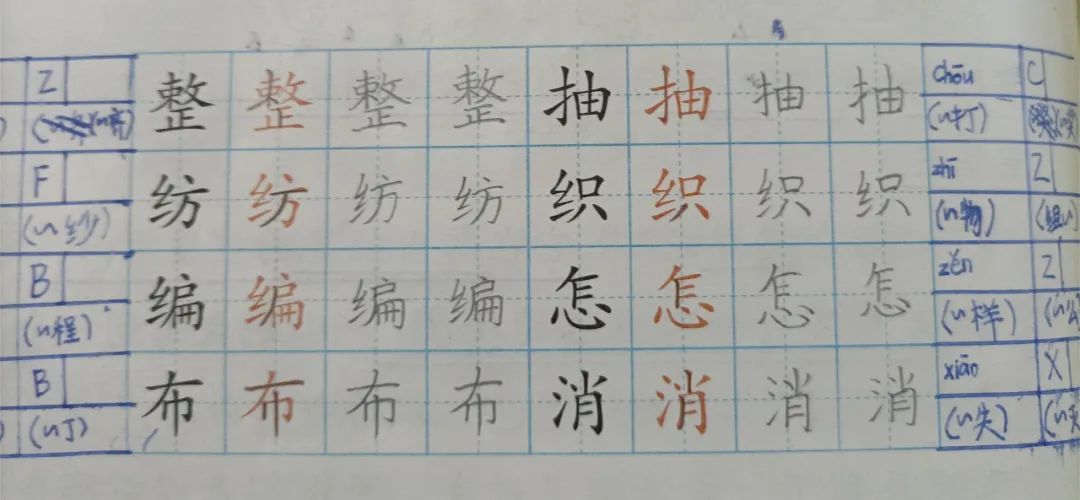 Z 整 整 整 整 抽 抽 抽 抽 chōu C
(~齐) (~打)
F 纺 纺 纺 纺 织 织 织 织 zhī Z
(~纱) (~物) (组~)
B 编 编 编 编 怎 怎 怎 怎 zěn Z
(~程) (~样) (~么
B 布 布 布 布 消 消 消 消 xiāo X
(~丁) (~失)